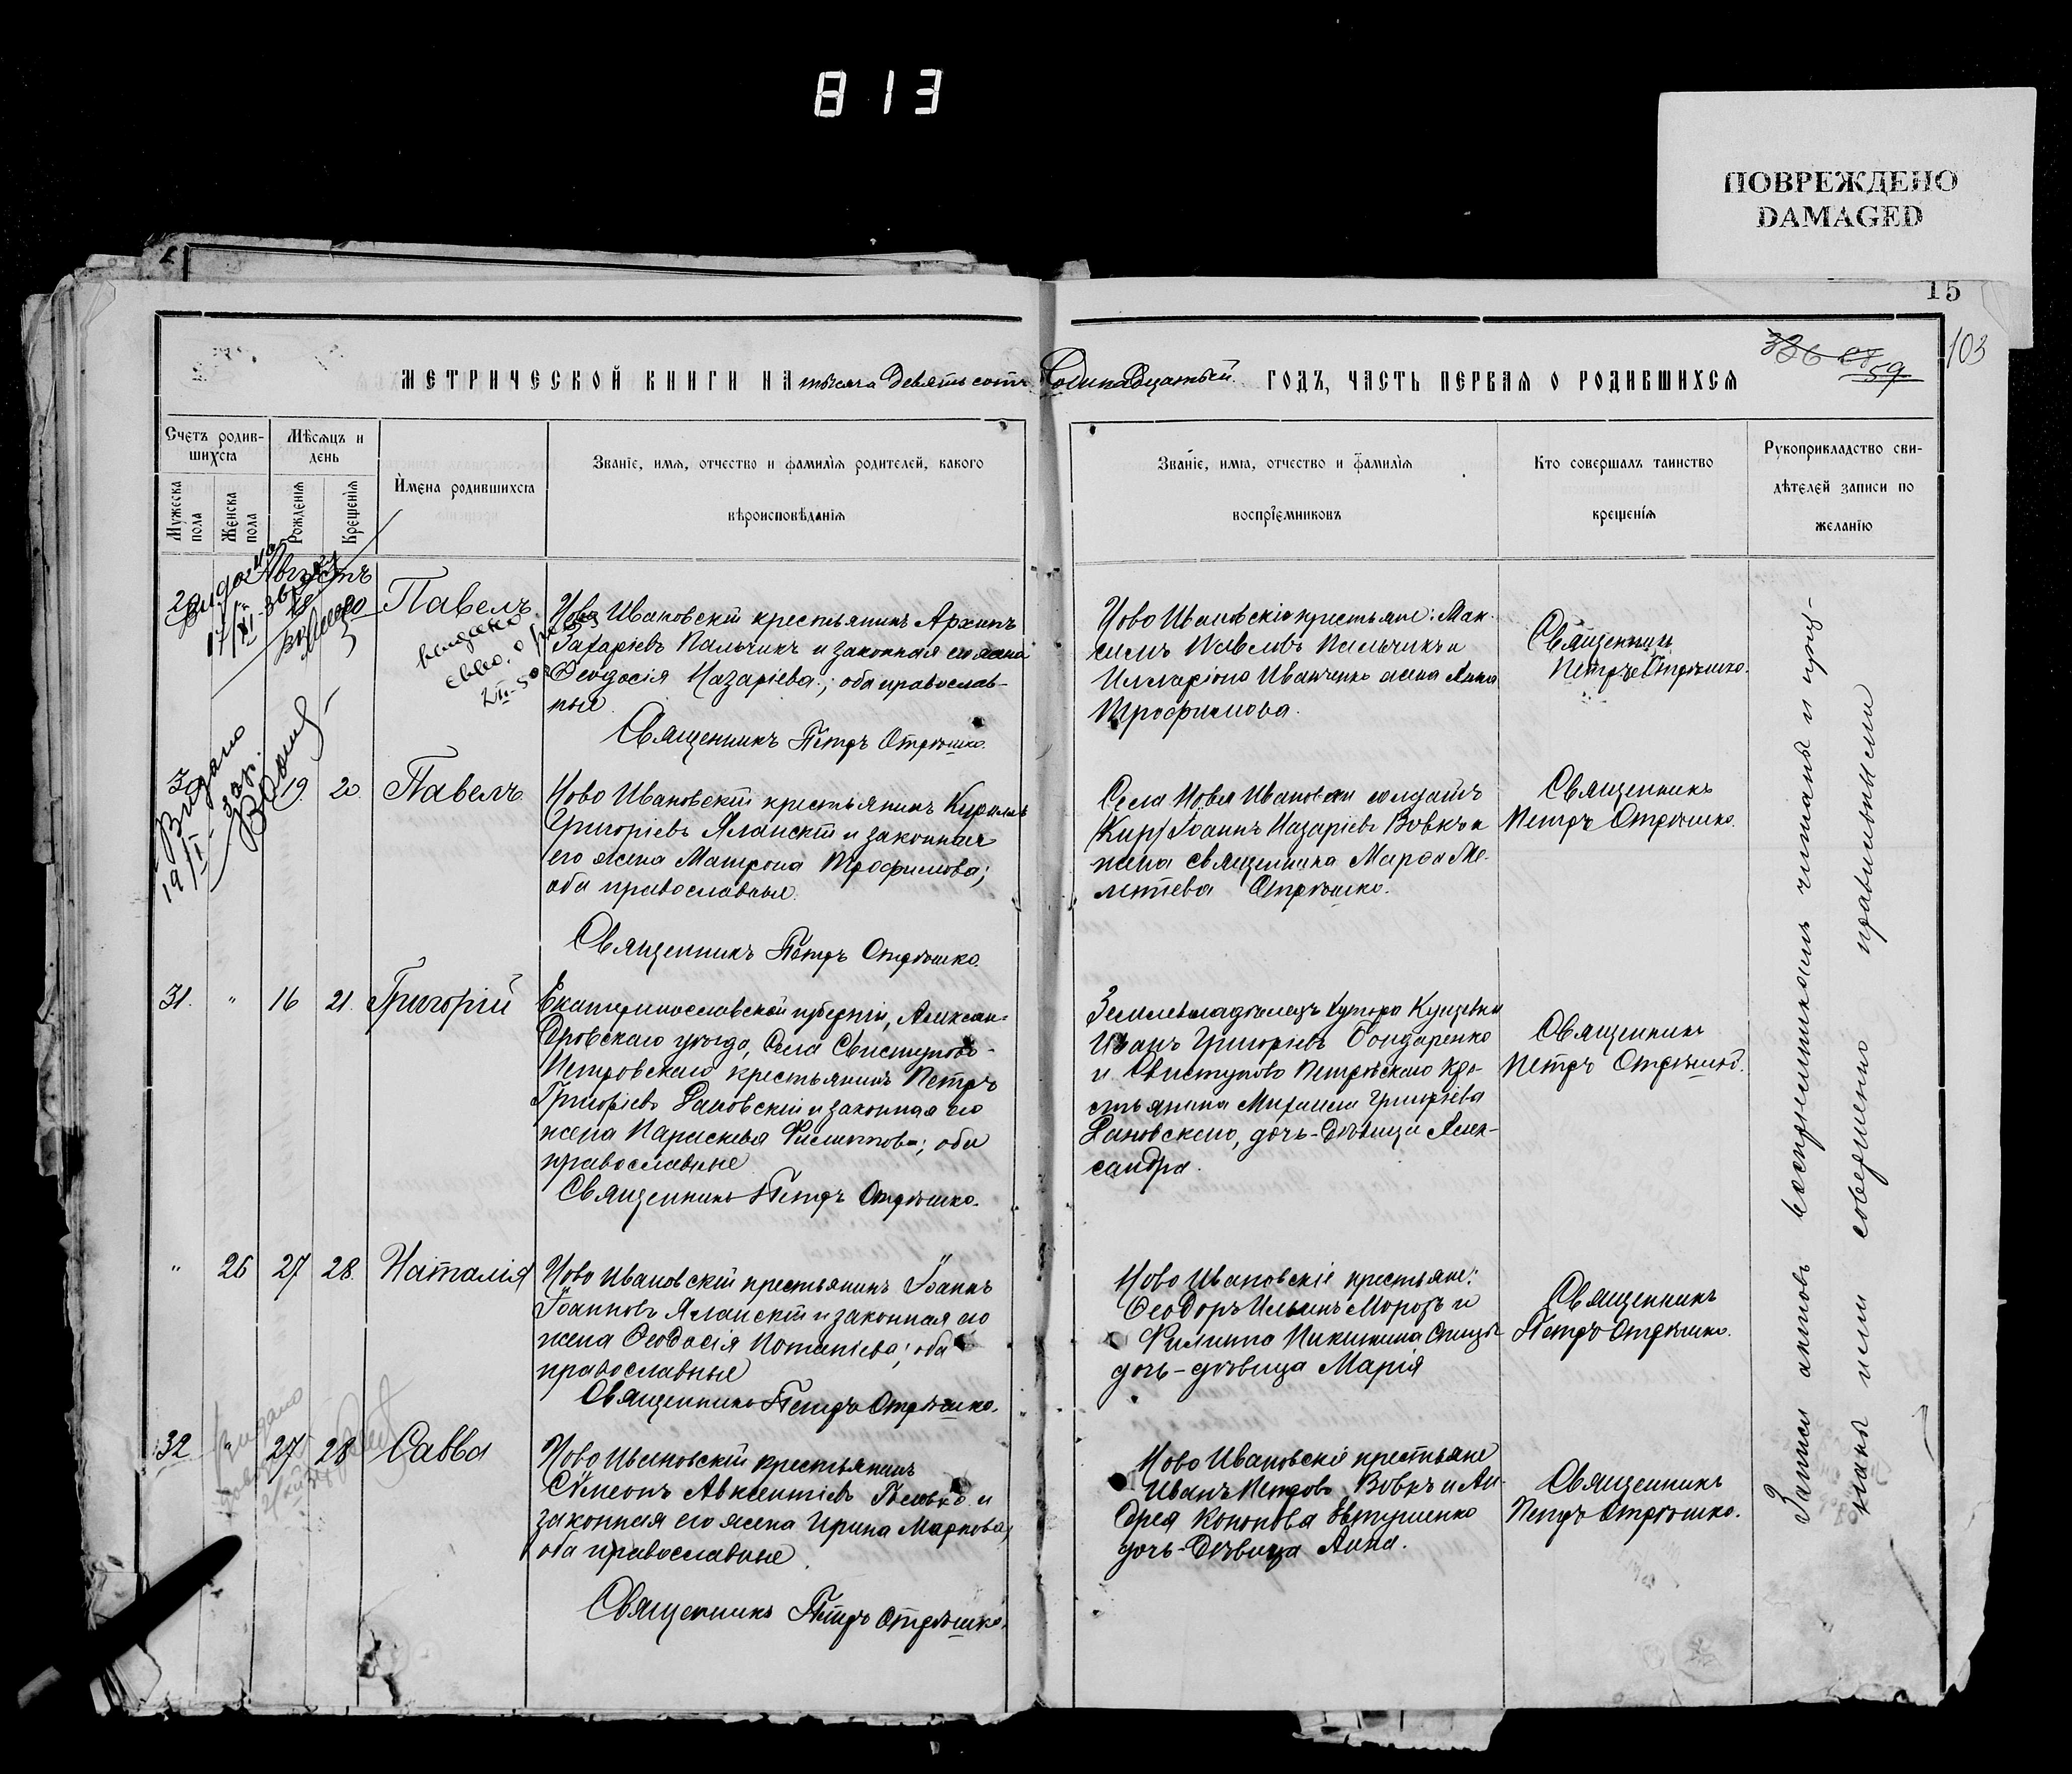 813
ПОВРЕЖДЕНО
DAMAGED
15
103
59
МЕТРИЧЕСКОЙ КНИГИ НА тысяча девятьсотъ одинадцатый ГОДЪ, ЧАСТЬ ПЕРВАЯ О РОДИВШИХСЯ
Счетъ родив-
шихся
Мужеска пола
Женска пола
Мѣсяцъ и
день
Рожденія
Крещенія
Имена родившихся
Званіе, имя, отчество и фамилія родителей, какого
вѣроисповѣданія
Званіе, имя, отчество и фамилія
воспріемниковъ
Кто совершалъ таинство
крещенія
Рукоприкладство сви-
дѣтелей записи по
желанію
Августъ
Павелъ
Ново Ивановскій крестьянинъ Архипъ
Захаріевъ Пальчикъ и законная его жена
Ѳеодосія Назаріева; оба православ-
ные
Священникъ Петръ Отрѣшко.
Ново Ивановскіе крестьяне: Мак-
симъ Павловъ Пальчикъ и
Илларіона Иванченко жена Анна
Трофимова.
Священникъ
Петръ Отрѣшко.
30
Видано
19/I
19. 20. Павелъ
Ново Ивановскій крестьянинъ Кириллъ
Григоріевъ Яланскій и законная
его жена Матрона Трофимова;
оба православные.
Священникъ Петръ Отрѣшко.
Села Ново Ивановки солдатъ
Іоаннъ Назаріевъ Вовкъ и
жена священника Марѳа Ме-
летіева Отрѣшко.
Священникъ
Петръ Отрѣшко.
31. " 16 21. Григорій
Екатеринославской губерніи, Алексан-
дровскаго уѣзда, села Свистуново-
Петровскаго крестьянинъ Петръ
Григоріевъ Лановскій и законная его
жена Параскева Филиппова; оба
православные
Священникъ Петръ Отрѣшко.
Землевладѣлецъ хутора
Иванъ Григоріевъ Бондаренко
и Свистуново Петровскаго кре-
стьянина Михаила Григоріева
Лановскаго, дочь-дѣвица Алек-
сандра.
Священникъ
Петръ Отрѣшко.
" 26 27 28. Наталія
Ново Ивановскій крестьянинъ Іоаннъ
Іоанновъ Яланскій и законная его
жена Ѳеодосія Потапіева; оба
православные
Священникъ Петръ Отрѣшко.
Ново Ивановскіе крестьяне:
Ѳеодоръ Ильинъ Морозъ и
Филиппа Никитина
дочь-дѣвица Марія
Священникъ
Петръ Отрѣшко.
32 " 27 28 Савва
Ново Ивановскій крестьянинъ
Сѵмеонъ Авксентіевъ Головко и
законная его жена Ирина Маркова,
оба православные.
Священникъ Петръ Отрѣшко.
Ново Ивановскіе крестьяне
Иванъ Петровъ Вовкъ и Ан-
дрея Кононова Евтушенко
дочь-дѣвица Анна.
Священникъ
Петръ Отрѣшко.
Записи актовъ воспріемникамъ читаны и приз-
наны ими совершенно правильными